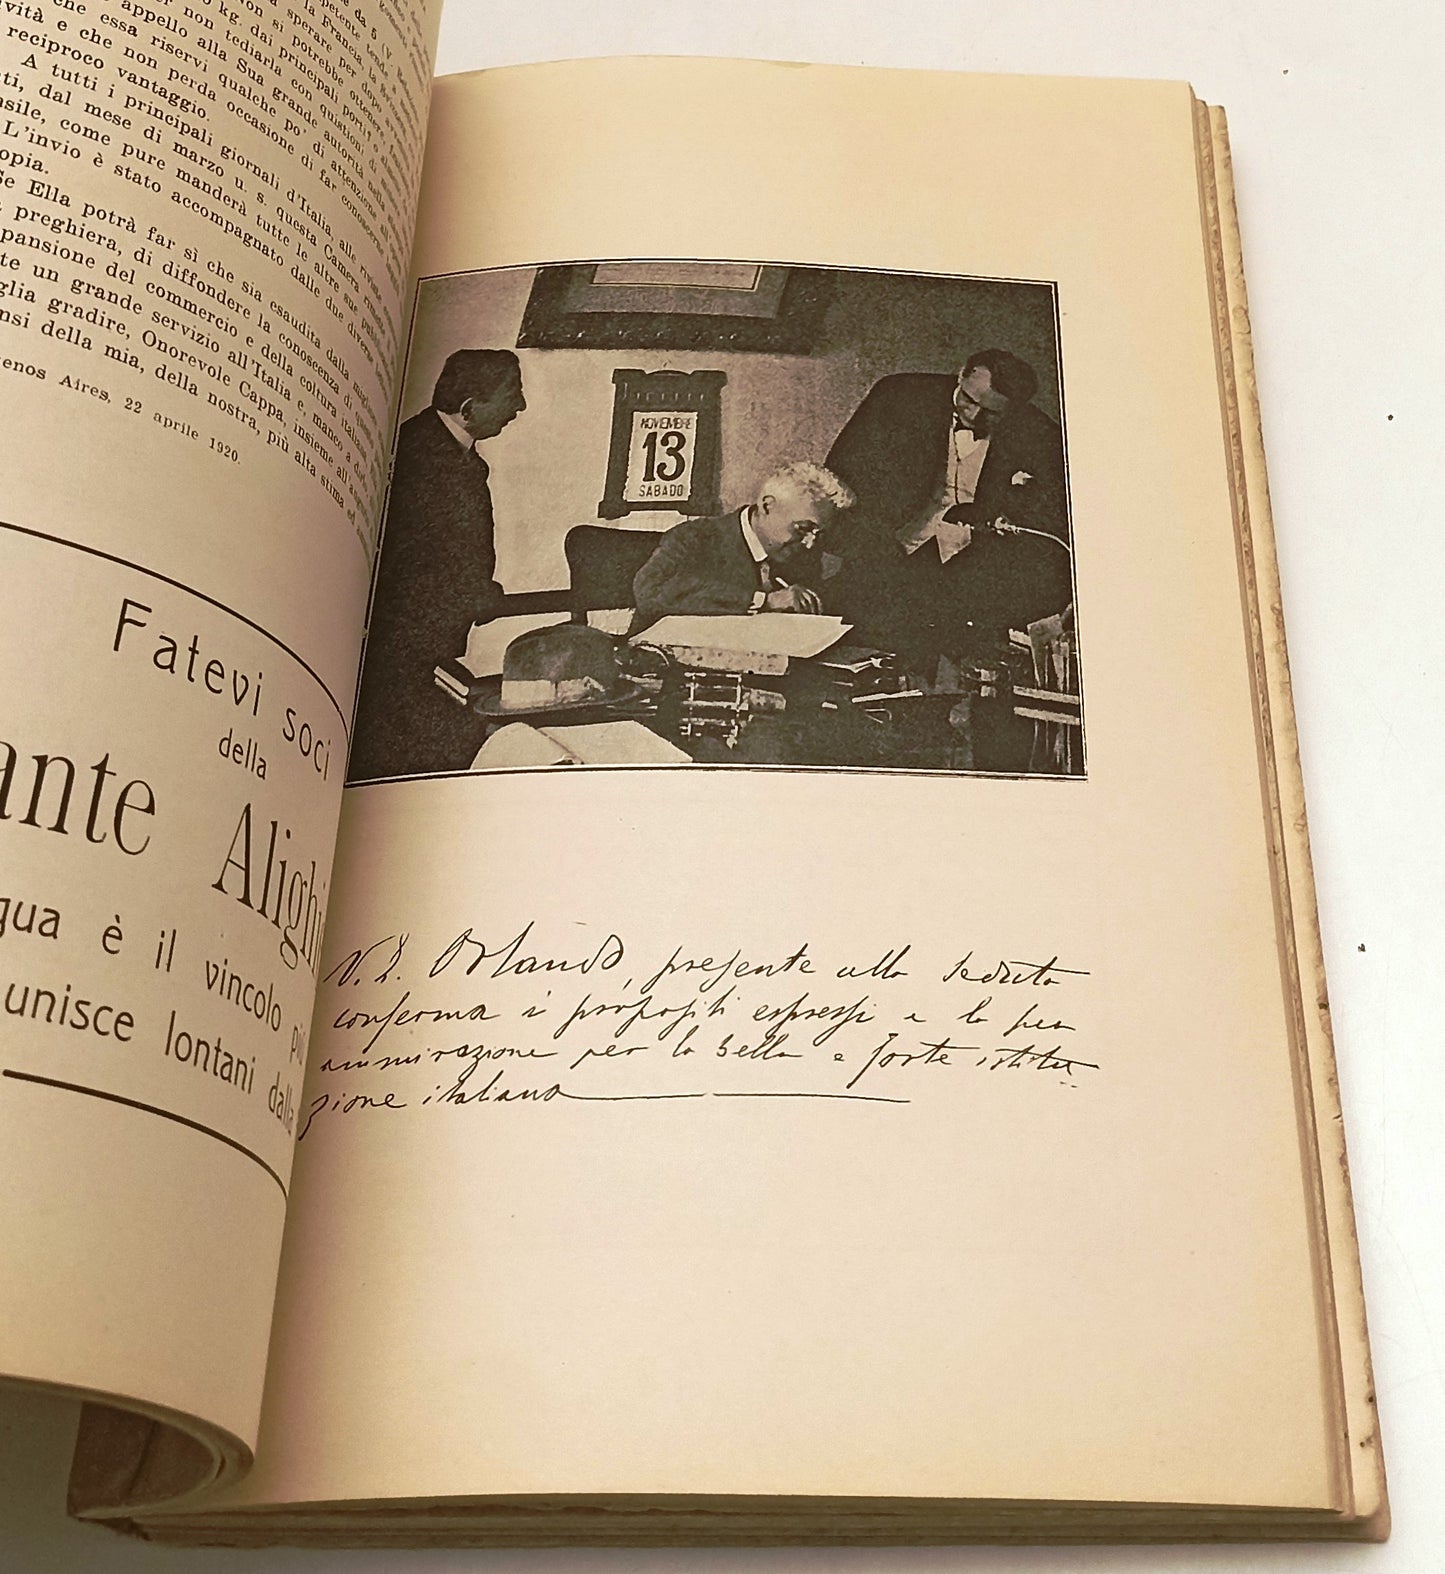 da 5 (V.
kg. dai principali porti
Non si potrebbe ottenere,
sperare per dopo
la Francia, la
appello alla Sua grande autorità nella
non tediarla con quistioni di
che essa riservi qualche po' di attenzione all'
vità e che non perda occasione di far conoscere
reciproco vantaggio.
A tutti i principali giornali d'Italia, alle riviste
ti, dal mese di marzo u. s. questa Camera
sile, come pure manderà tutte le altre sue
L'invio è stato accompagnato dalle due diverse
opia.
Se Ella potrà far sì che sia esaudita dalla
preghiera, di diffondere la conoscenza di
pansione del commercio e della coltura italiana,
te un grande servizio all'Italia e, manco a dirlo,
glia gradire, Onorevole Cappa, insieme all'
nsi della mia, della nostra, più alta stima ed
enos Aires, 22 aprile 1920.
Fatevi soci
della
ante Alighi
gua è il vincolo più
unisce lontani dalla
NOVIEMBRE
13
SABADO
V. E. Orlando, presente alla seduta
conferma i propositi espressi e la sua
ammirazione per la bella e forte istitu
zione italiana